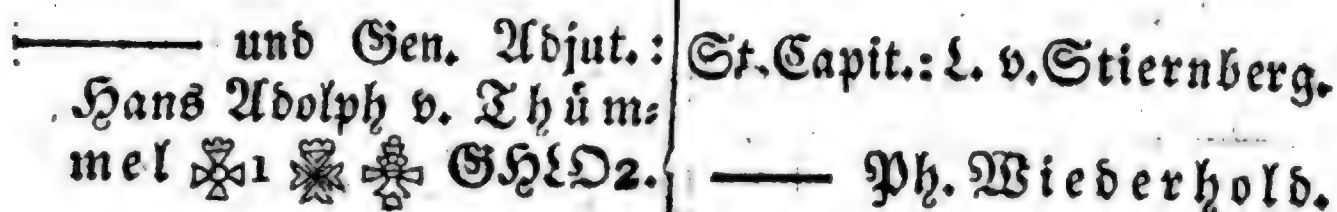 ——— und Gen. Adjut.:
Hans Adolph v. Thüm-
mel 1 GHLO2.
St. Capit.: L. v. Stiernberg.
——— Ph. Wiederhold.